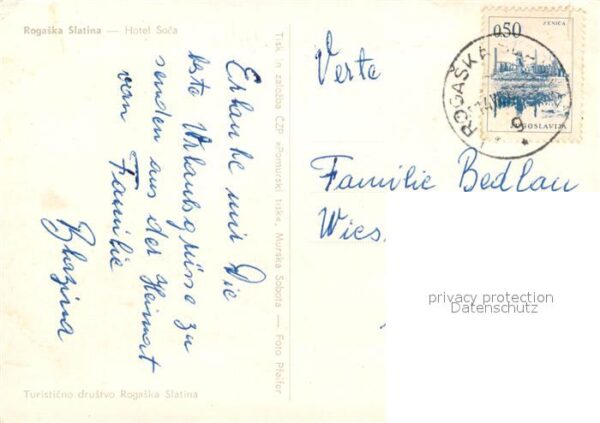 Rogaška Slatina — Hotel Soča
Erlaube mir Die
beste Urlaubsgrüsse zu
senden aus der Heimat
von
Familie
Turistično društvo Rogaška Slatina
Tisk in založba ČZP »Pomurski tisk«, Murska Sobota — Foto Pfeifer
ZENICA
0,50
JUGOSLAVIJA
ROGAŠKA
9
Verte
Familie Bedlau
Wies
privacy protection
Datenschutz